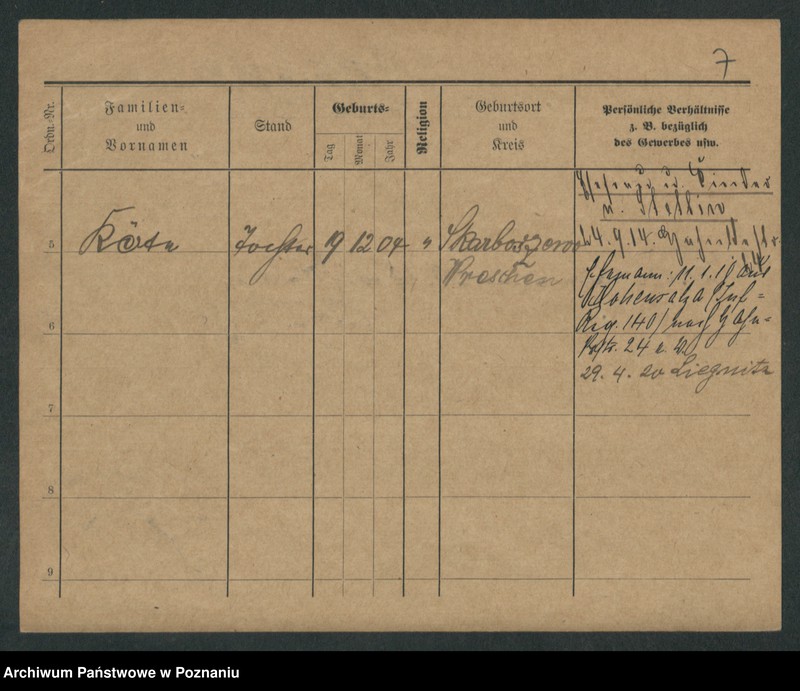 7
Ordn.-Nr.
Familien-
und
Vornamen
Stand
Geburts-
Tag
Monat
Jahr
Religion
Geburtsort
und
Kreis
Persönliche Verhältnisse
z. B. bezüglich
des Gewerbes usw.
Ehefrau u. Kinder
n. Stettin
5 Käte Tochter 19 12 04 " Skarboszewo
Wreschen
24.9.14.
Ehemann: 11.1.19 aus
Hohensalza (Inf-
Rig. 140) nach
24
29. 4. 20 Liegnitz
6
7
8
9
Archiwum Państwowe w Poznaniu